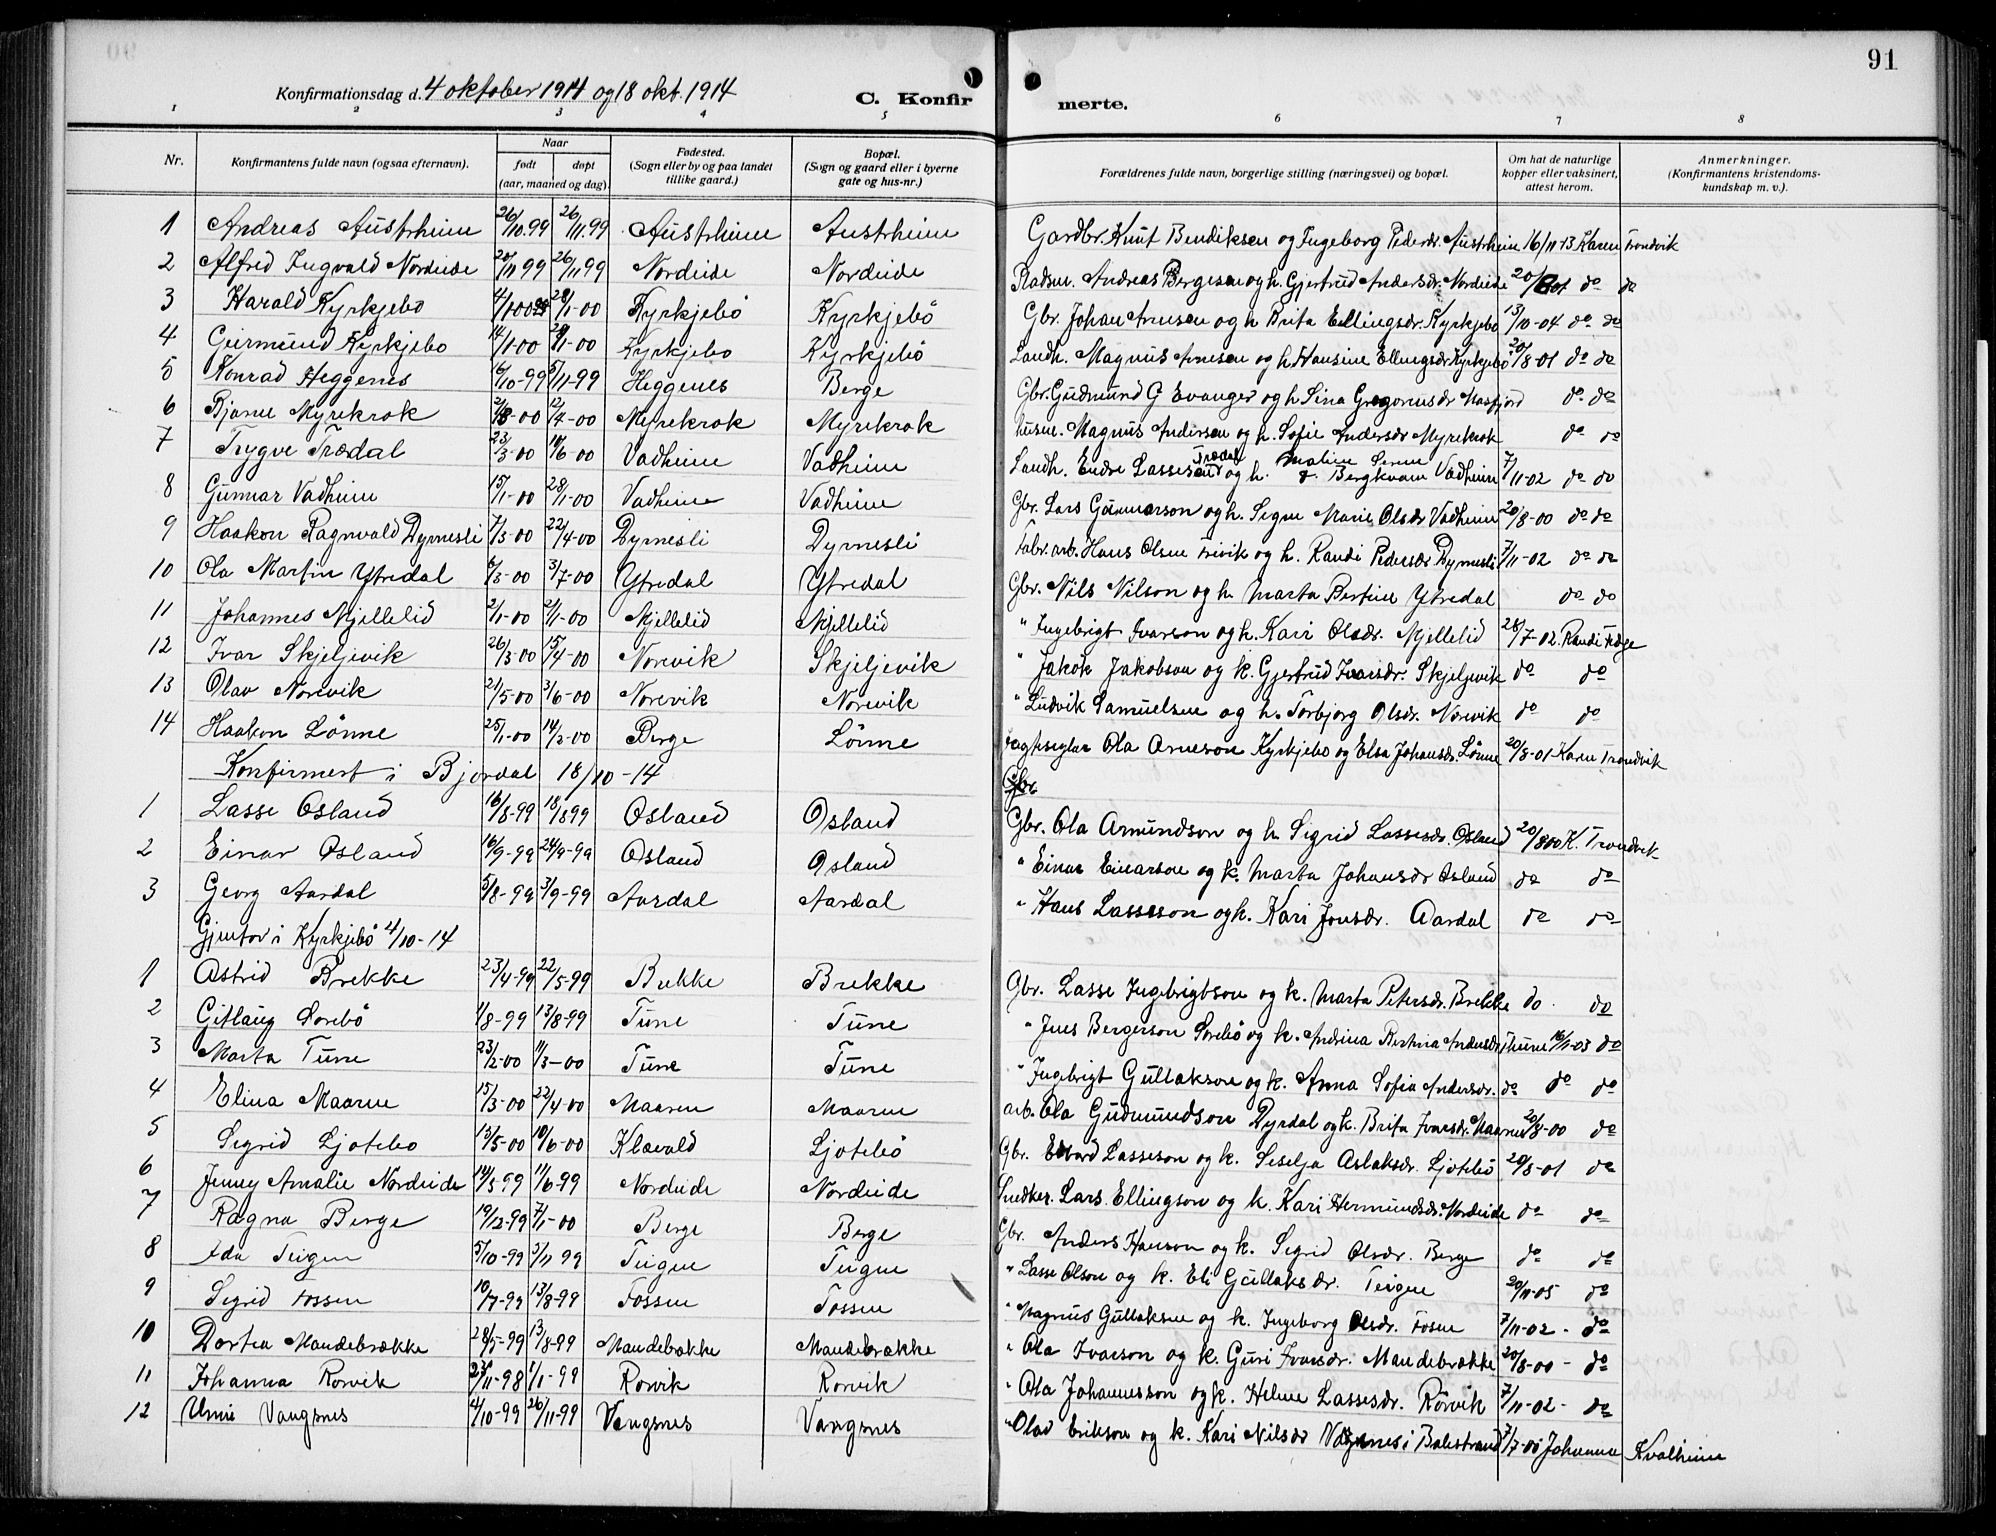 91
Konfirmationsdag d. 4 oktober 1914 og 18 okt. 1914 C. Konfirmerte.
1 2 3 4 5 6 7 8
Nr. Konfirmantens fulde navn (ogsaa efternavn). Naar født døpt (aar, maaned og dag). Fødested. (Sogn eller by og paa landet tillike gaard.) Bopæl. (Sogn og gaard eller i byerne gate og hus-nr.) Forældrenes fulde navn, borgerlige stilling (næringsvei) og bopæl. Om hat de naturlige kopper eller vaksinert, attest herom. Anmerkninger. (Konfirmantens kristendomskundskap m. v.).
1 Andreas Austrheim 26/10.99 26/11.99 Austrheim Austrheim Gardbr. Knut Bendiksen og Ingeborg Pedersdr. Austrheim 16/11 13 Karen Trondvik
2 Alfred Ingvald Nordeide 20/11 99 26/11 99 Nordeide Nordeide Pladsm. Andreas Bergesen og h. Gjertrud Andersdr. Nordeide 20/8 01 do do
3 Harald Kyrkjebo 4/1 00 28/1-00 Kyrkjebö Kyrkjebö Gbr. Johan Arnesen og h Brita Ellingsdr. Kyrkjebö 13/10-04 do do
4 Geirmund Kyrkjebo 14/1-00 28/1-00 Kyrkjebo Kyrkjebö Landh. Magnus Arnesen og h. Hansine Ellingsdr Kyrkjebö 20/8-01 do do
5 Konrad Heggenes 6/10-99 5/11-99 Heggenes Berge Gbr. Gudmund G Evanger og h Sina Gregoriusdr Masfjord do do
6 Bjarne Myrekrok 2/3-00 12/4-00 Myrekrok Myrekrok husm. Magnus Andersen og h. Sofie Andersdr Myrekrok do do
7 Trygve Trædal 23/3-00 10/6-00 Vadheim Vadheim Landh. Endre Lassesen Trædal og h. Maline Senne d. Bergkvam Vadheim 7/11-02 do do
8 Gunnar Vadheim 15/1-00 28/1-00 Vadheim Vadheim Gbr. Lars Gunnarson og h. Signe Marie Olsdr Vadheim 20/8-00 do do
9 Haakon Ragnvald Dyrnesli 7/3-00 22/4-00 Dyrnesli Dyrnesli Fabr. arb. Hans Olsen Trivik og h. Randi Pedersdr Dyrnesli 7/11-02 do do
10 Ola Martin Ytredal 6/3-00 3/7-00 Ytredal Ytredal Gbr. Nils Nilson og h Marta Bertine Ytredal do do
11 Johannes Mjellelid 2/1-00 21/1-00 Mjellelid Mjellelid " Ingebrigt Ivarson og h. Kari Olsdr. Mjellelid 28/7-02. Randi Fæge
12 Ivar Skjeljevik 26/3-00 15/4-00 Norevik Skjeljevik " Jakob Jakobson og k. Gjertrud Ivarsdr. Skjeljevik do do
13 Olav Norevik 21/5-00 3/6-00 Norevik Norevik " Ludvik Samuelsen og h. Torbjorg Olsdr. Norevik do do
14 Haakon Lönne 25/1-00 14/3-00 Berge Lönne Ola Arneson Kyrkjebo og Elsa Johansdr. Lönne 20/8-01 Karen Trondvik
Konfirmert i Bjordal 18/10-14 Gbr
1 Lasse Osland 16/8-99 18/8 99 Osland Osland Gbr. Ola Amundson og h Sigrid Lassesdr. Osland 20/8 00 K. Trondvik
2 Einar Osland 16/9-99 24/9-99 Osland Osland " Einar Einarson og k. Marta Johansdr Osland do do
3 Georg Aardal 5/8-99 3/9-99 Aardal Aardal " Hans Lasseson og k. Kari Jonsdr. Aardal do do
Gjentor i Kyrkjebö 4/10-14
1 Astrid Brekke 23/4-99 22/5-99 Brekke Brekke Gbr. Lasse Ingebrigtson og k. Marta Petersdr. Brekke do do
2 Gitlaug Sorebö 1/8-99 13/8-99 Tune Tune " Jens Bergerson Sorebö og k. Andrina Bertina Andersdr Thune 16/11-03 do
3 Marta Tune 23/2-00 11/3-00 Tune Tune " Ingebrigt Gullakson og k. Anna Sofia Andersdr. do do do
4 Elina Maaren 15/3-00 22/4-00 Maaren Maaren arb. Ola Gudmundson Dyrdal og k. Brita Ivarsdr. Maaren 20/8-00 do
5 Sigrid Ljotebo 13/5-00 10/6-00 Klævold Ljotebö Gbr. Lasseson og k. Seselja Aslaksdr. Ljotebö 20/8-01 do
6 Jenney Amalie Nordeide 14/5 99 11/6-99 Nordeide Nordeide Snedker. Lars Ellingson og k. Kari Hermundsdr. Nordeide do do
7 Ragna Berge 19/12-99 7/1-00 Berge Berge Gbr. Anders Hanson og k. Sigrid Olsdr. Berge do do
8 Ida Teigen 5/10-99 5/11 99 Teigen Teigen " Lasse Olson og k. Eli Gullaksdr. Teigen 20/11-05 do
9 Sigrid Fossen 10/7-99 13/8-99 Fossen Fossen " Magnus Gullaksen og k. Ingeborg Olsdr. Fosen 7/11-02 - do
10 Dortea Mandebrække 28/5-99 13/8-99 Mandebrække Mandebrække " Ola Ivarson og k. Guri Ivarsdr. Mandebrække 20/8-00 - do
11 Johanna Rorvik 27/11-98 1/1-99 Rorvik Rorvik " Ola Johannesson og k. Helene Lassesdr. Rörvik 7/11-02 - do
12 Unni Vangsnes 4/10-99 26/11-99 Vangsnes Vangsnes " Olav Erikson og k. Kari Nilsdr Vangsnes i Balestrand 7/7-00 Johanne Kvalheim